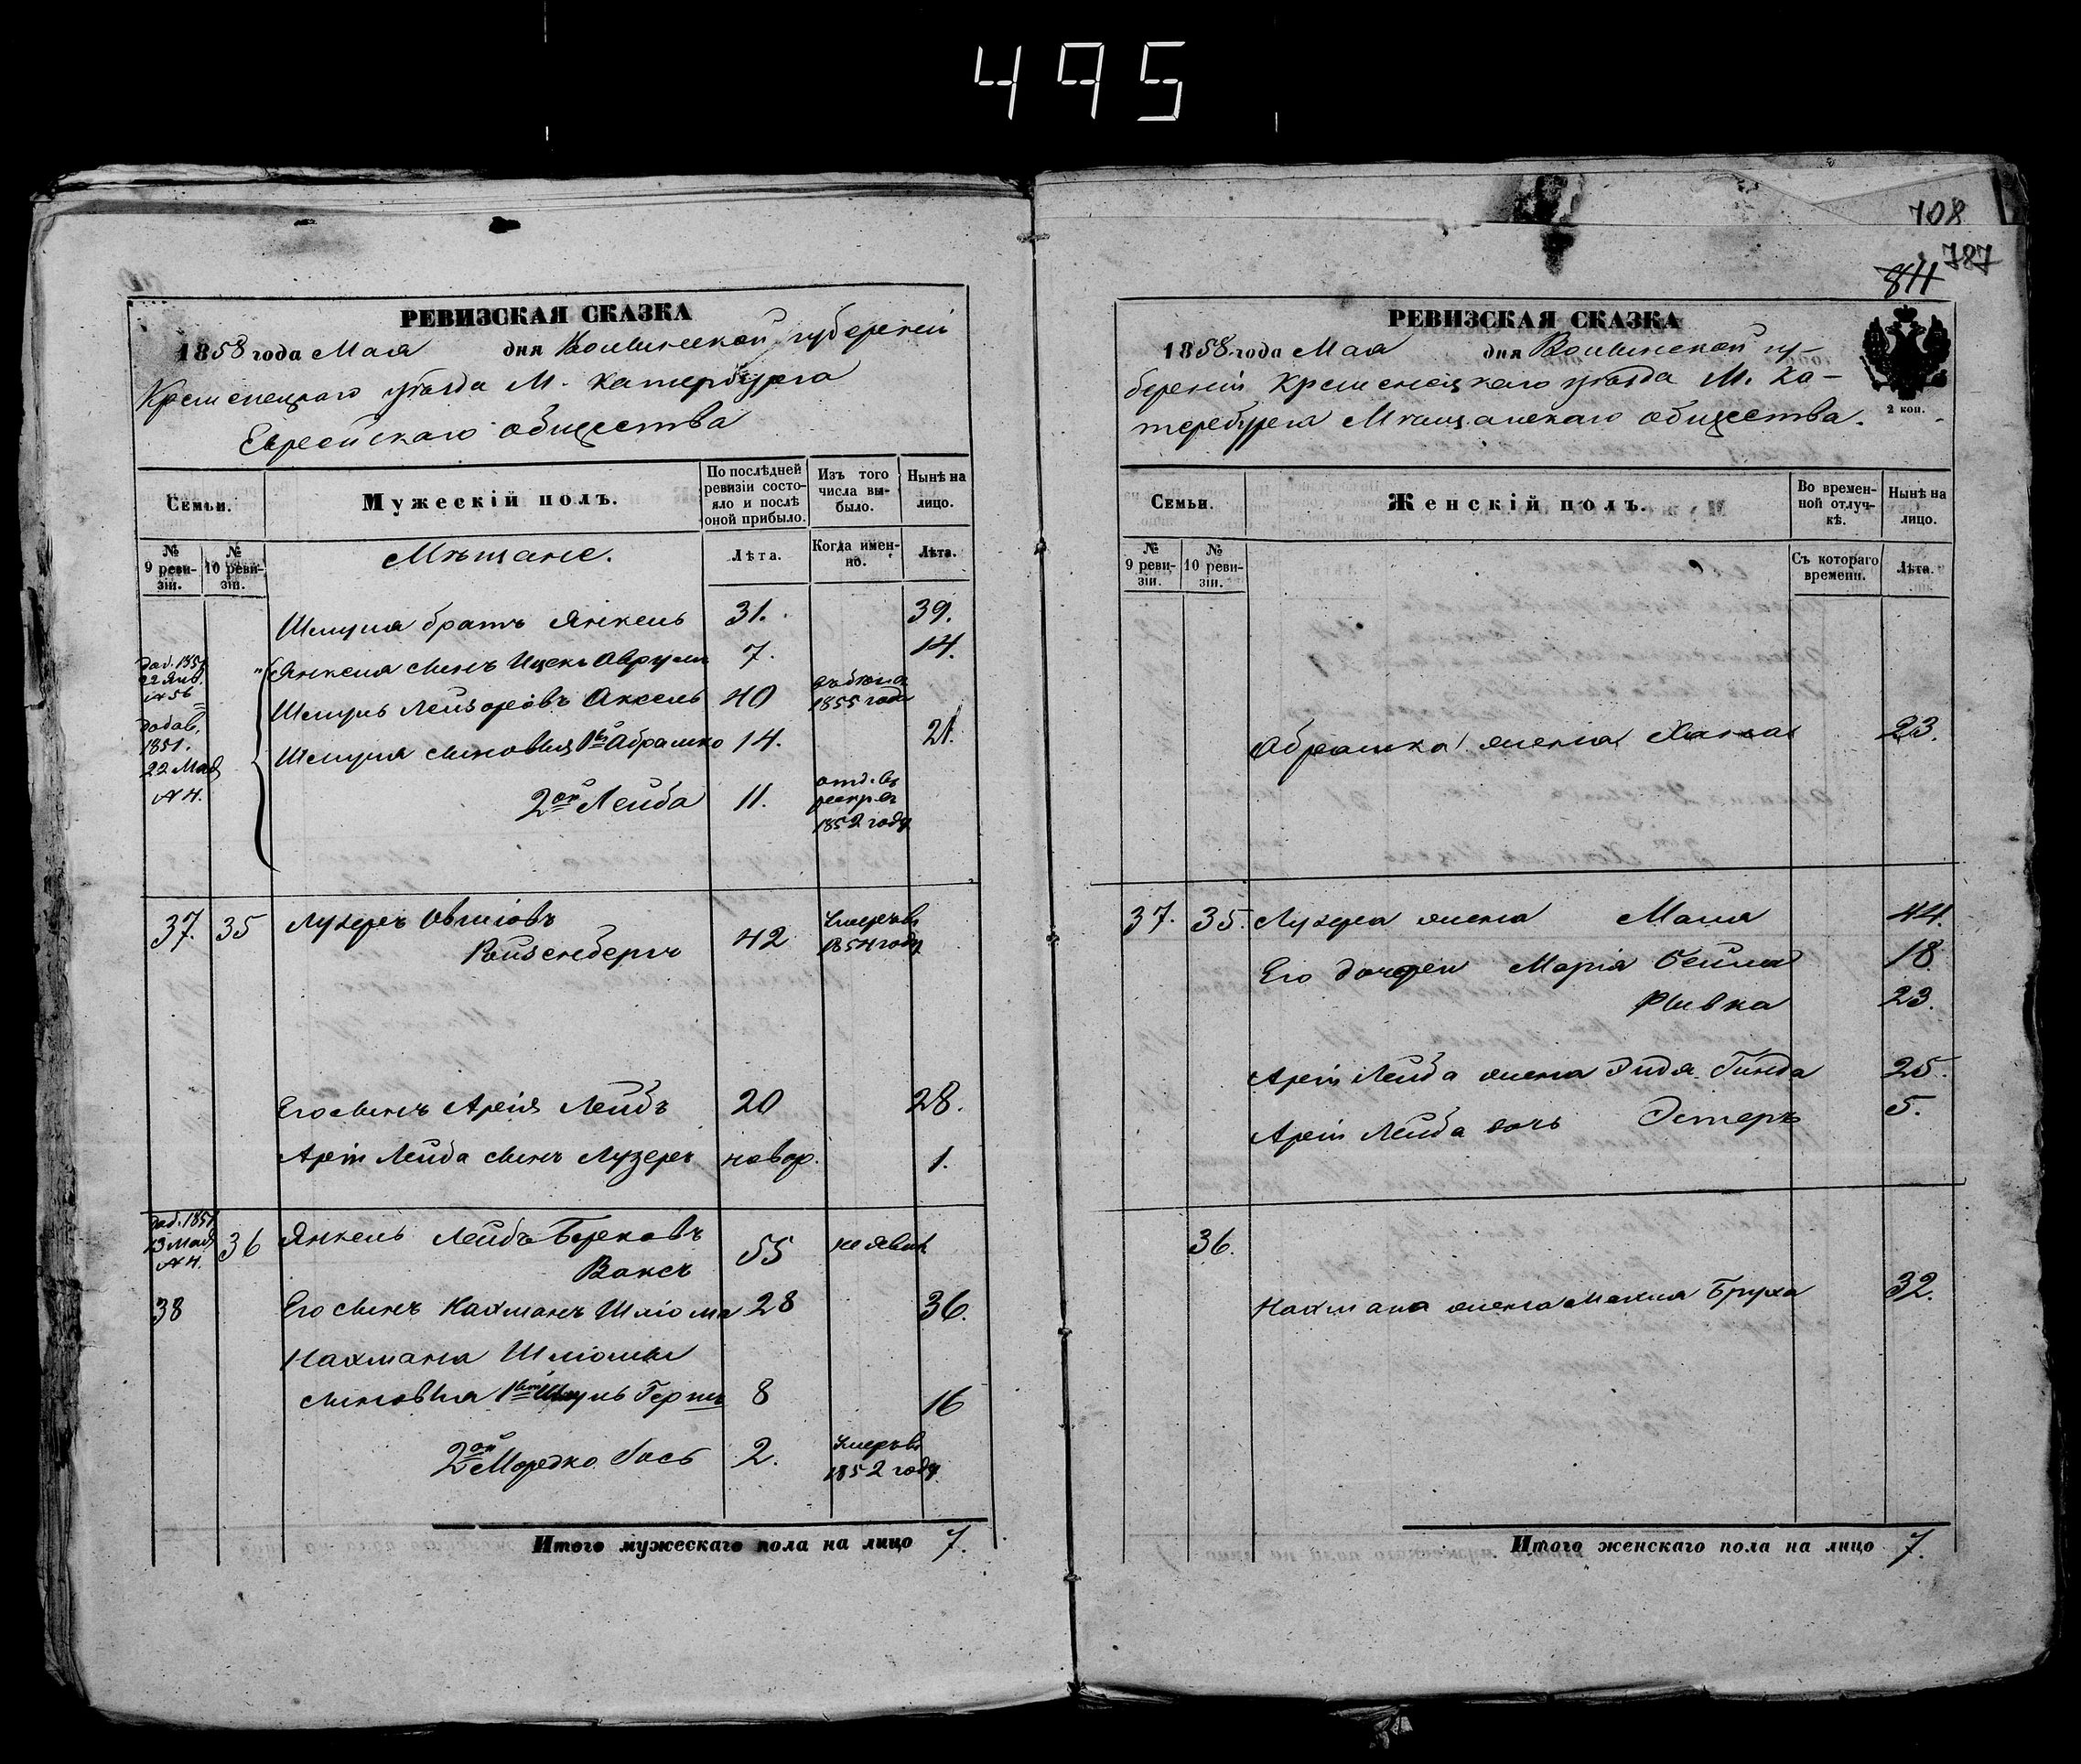 495
РЕВИЗСКАЯ СКАЗКА
1858 года Мая дня Волынской губерніи
Кременецкаго уѣзда М. Катербурга
Еврейскаго общества
Семьи.
Мужескій полъ.
По послѣдней ревизіи состояло и послѣ оной прибыло.
Изъ того числа выбыло.
Нынѣ на лицо.
№ 9 ревизіи.
№ 10 ревизіи.
Мѣщане.
Лѣта.
Когда именно.
Лѣта.
Шмуля братъ Янкель 31. 39.
дод. 1851 22 Янв. №56
Янкеля сынъ Ицекъ Аврумъ 7. 14.
Шмуль Лейзоровъ 40 1855 года
додав. 1851. 22 Мая №4.
Шмуля сыновья 1й Абрашко 14. 21.
2ой Лейба 11. отд. въ рекр. въ 1852 году
37. 35 Лузеръ Овшіовъ
Ройзенбергъ 42 Умеръ въ 1854 году
Его сынъ Арія Лейбъ 20 28.
Арія Лейба сынъ Лузеръ новор. 1.
дод. 1851 13 Мая №4.
36 Янкель Лейбъ Берковъ
Ваксъ 55 неявк.
38 Его сынъ Нахманъ Шліома 28 36.
Нахмана Шліомы
сыновья 1й Шмуль Гершъ 8 16
2ой Мордко Іось 2. Умеръ въ 1852 году
Итого мужескаго пола на лицо 7.
708
787
811
РЕВИЗСКАЯ СКАЗКА
1858 года Мая дня Волынской гу-
берніи Кременецкаго уѣзда М. Ка-
тербурга Мѣщанскаго общества.
2 коп.
Семьи.
Женскій полъ.
Во временной отлучкѣ.
Нынѣ на лицо.
№ 9 ревизіи.
№ 10 ревизіи.
Съ котораго времени.
Лѣта.
Абрашка жена Хана 23.
37. 35. Лузера жена Маля 44.
Его дочери Марія Бейла 18
Рывка 23.
Арія Лейба жена Эидя Гинда 25.
Арія Лейба дочь Эстеръ 5.
36.
Нахмана жена Малка Бруха 32.
Итого женскаго пола на лицо 7.